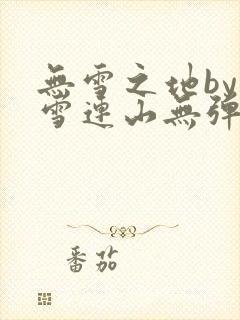 無雪之地by
雪連山無彈
番茄